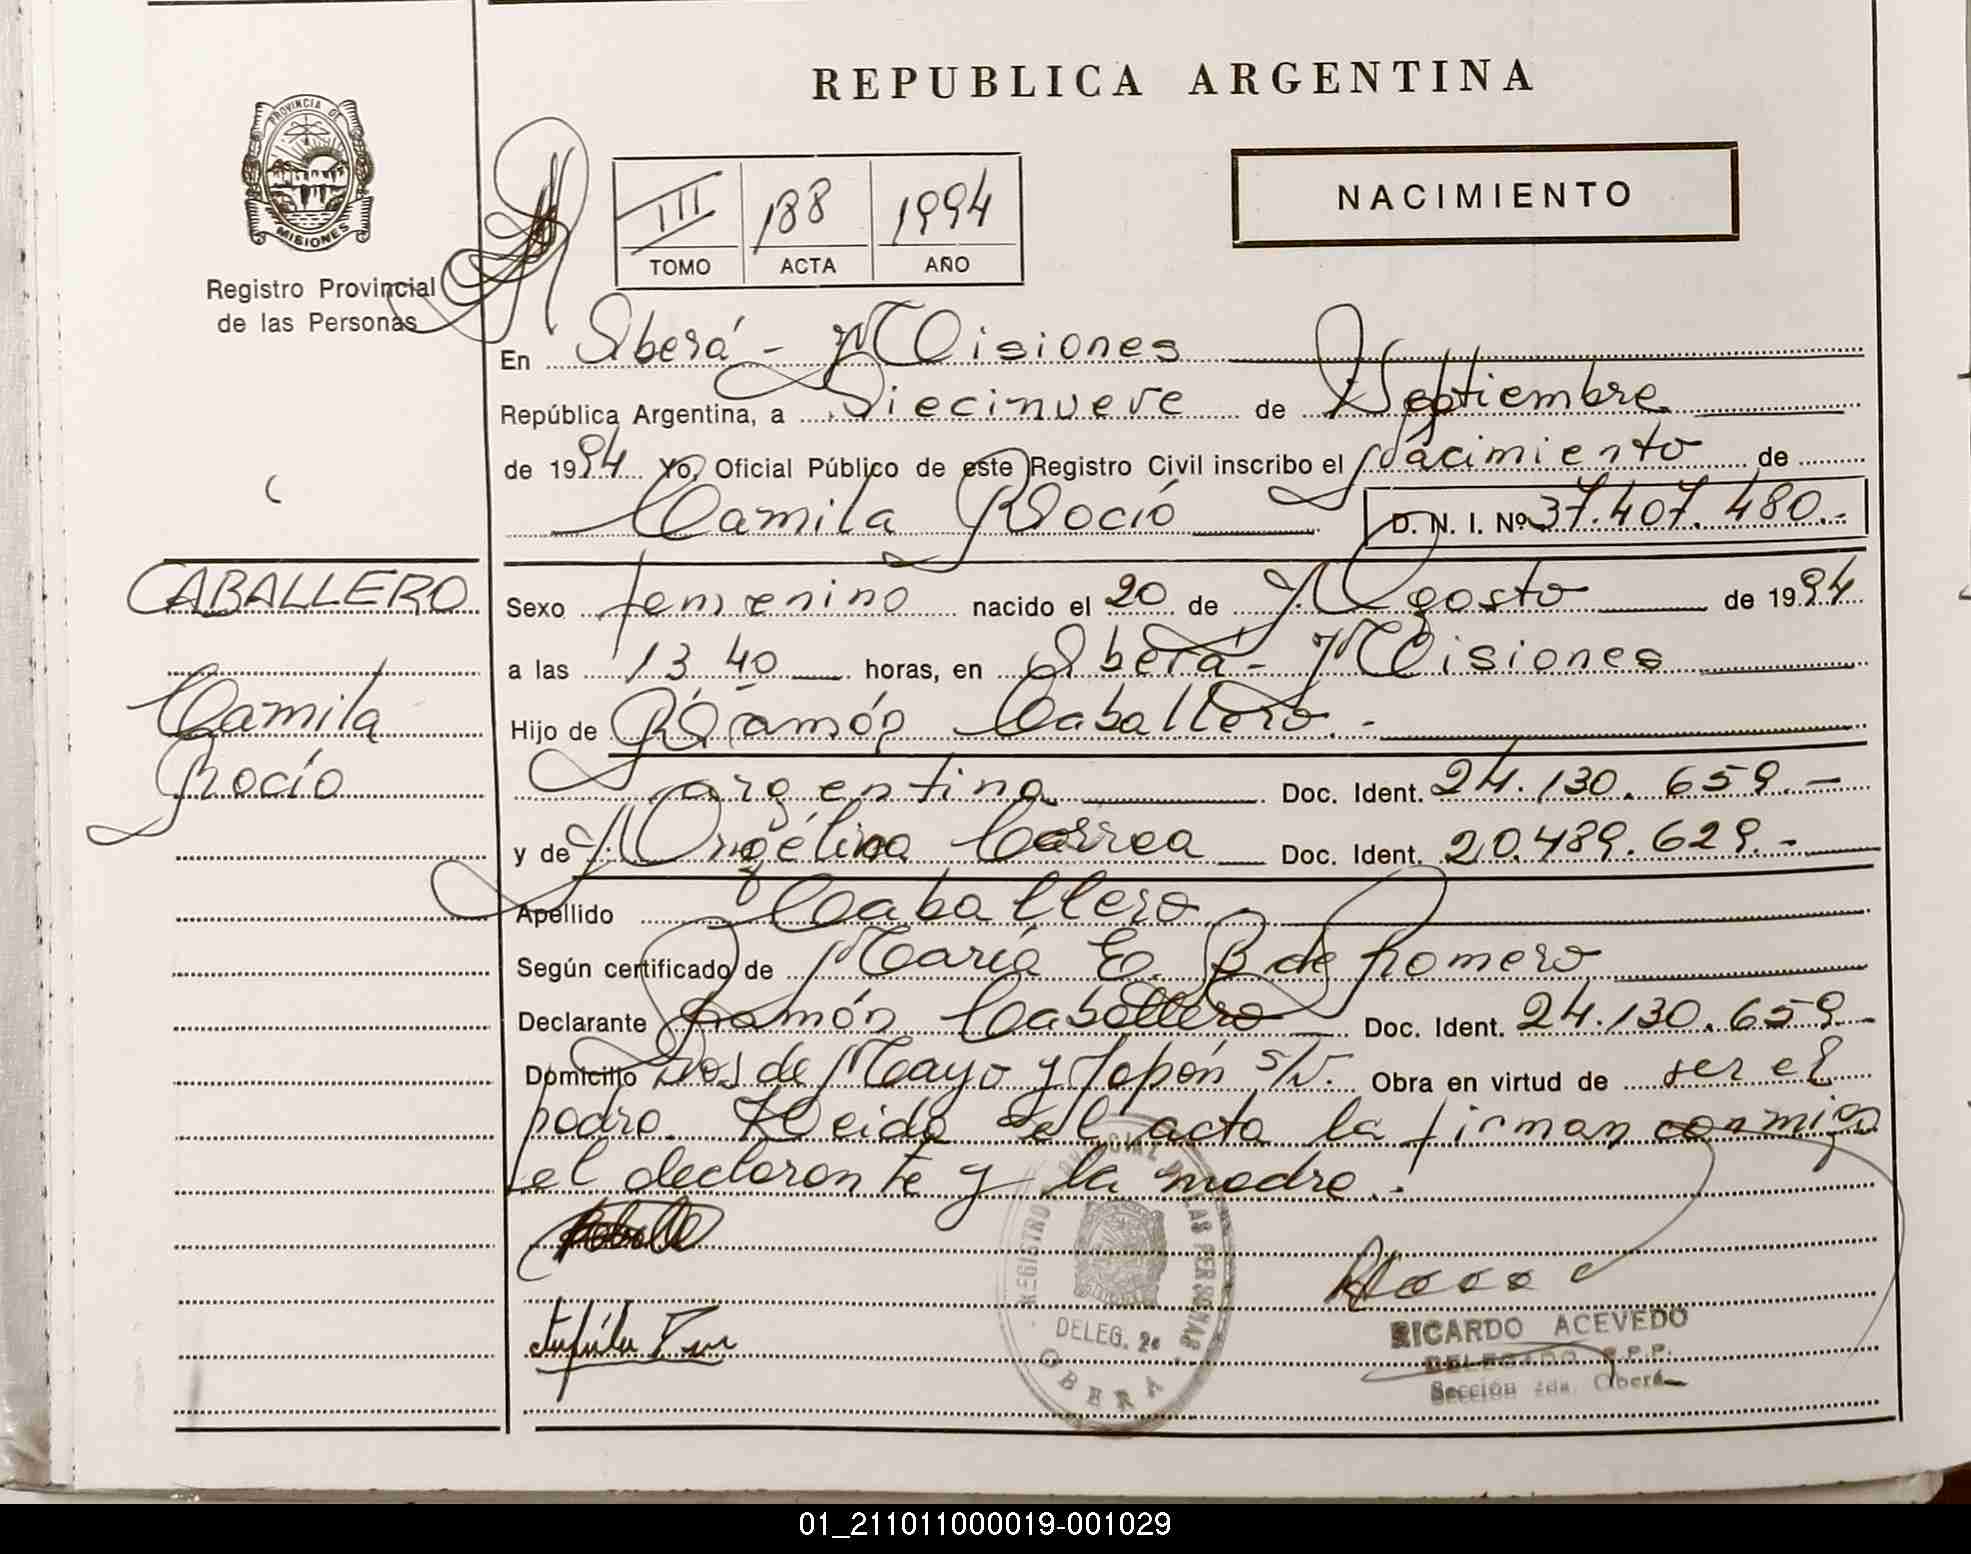 REPUBLICA ARGENTINA
PROVINCIA DE
MISIONES
Registro Provincial
de las Personas
NACIMIENTO
III 188 1994
TOMO ACTA AÑO
En Oberá - Misiones
República Argentina, a Diecinueve de Septiembre
de 1994 Yo, Oficial Público de este Registro Civil inscribo el Nacimiento de
Camila Rocío D. N. I. Nº 37.407.480.-
CABALLERO
Camila
Rocío
Sexo femenino nacido el 20 de Agosto de 1994
a las 13 40 horas, en Oberá - Misiones
Hijo de Ramón Caballero.-
argentino Doc. Ident. 24.130.659.-
y de Angélica Correa Doc. Ident. 20.489.629.-
Apellido Caballero
Según certificado de María E. B de Romero
Declarante Ramón Caballero Doc. Ident. 24.130.659
Domicilio Dos de Mayo y Japón S/N. Obra en virtud de ser el
padre. Leida el acta la firman conmigo
el declarante y la madre.-
REGISTRO PROVINCIAL DE LAS PERSONAS
DELEG. 2a
OBERA
RICARDO ACEVEDO
DELEGADO R.P.P.
Sección 2da. Oberá
01_211011000019-001029